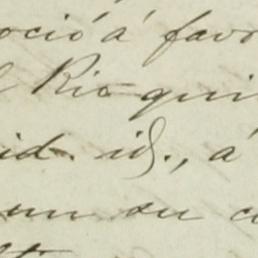 oció á favo
l Rio qui
id. id., á
un su c